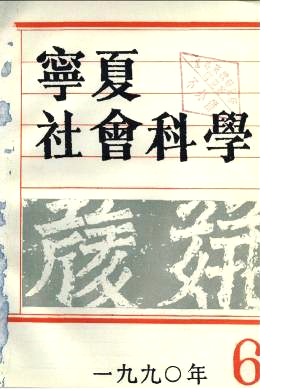 寧夏
社會科學
一九九〇年 6